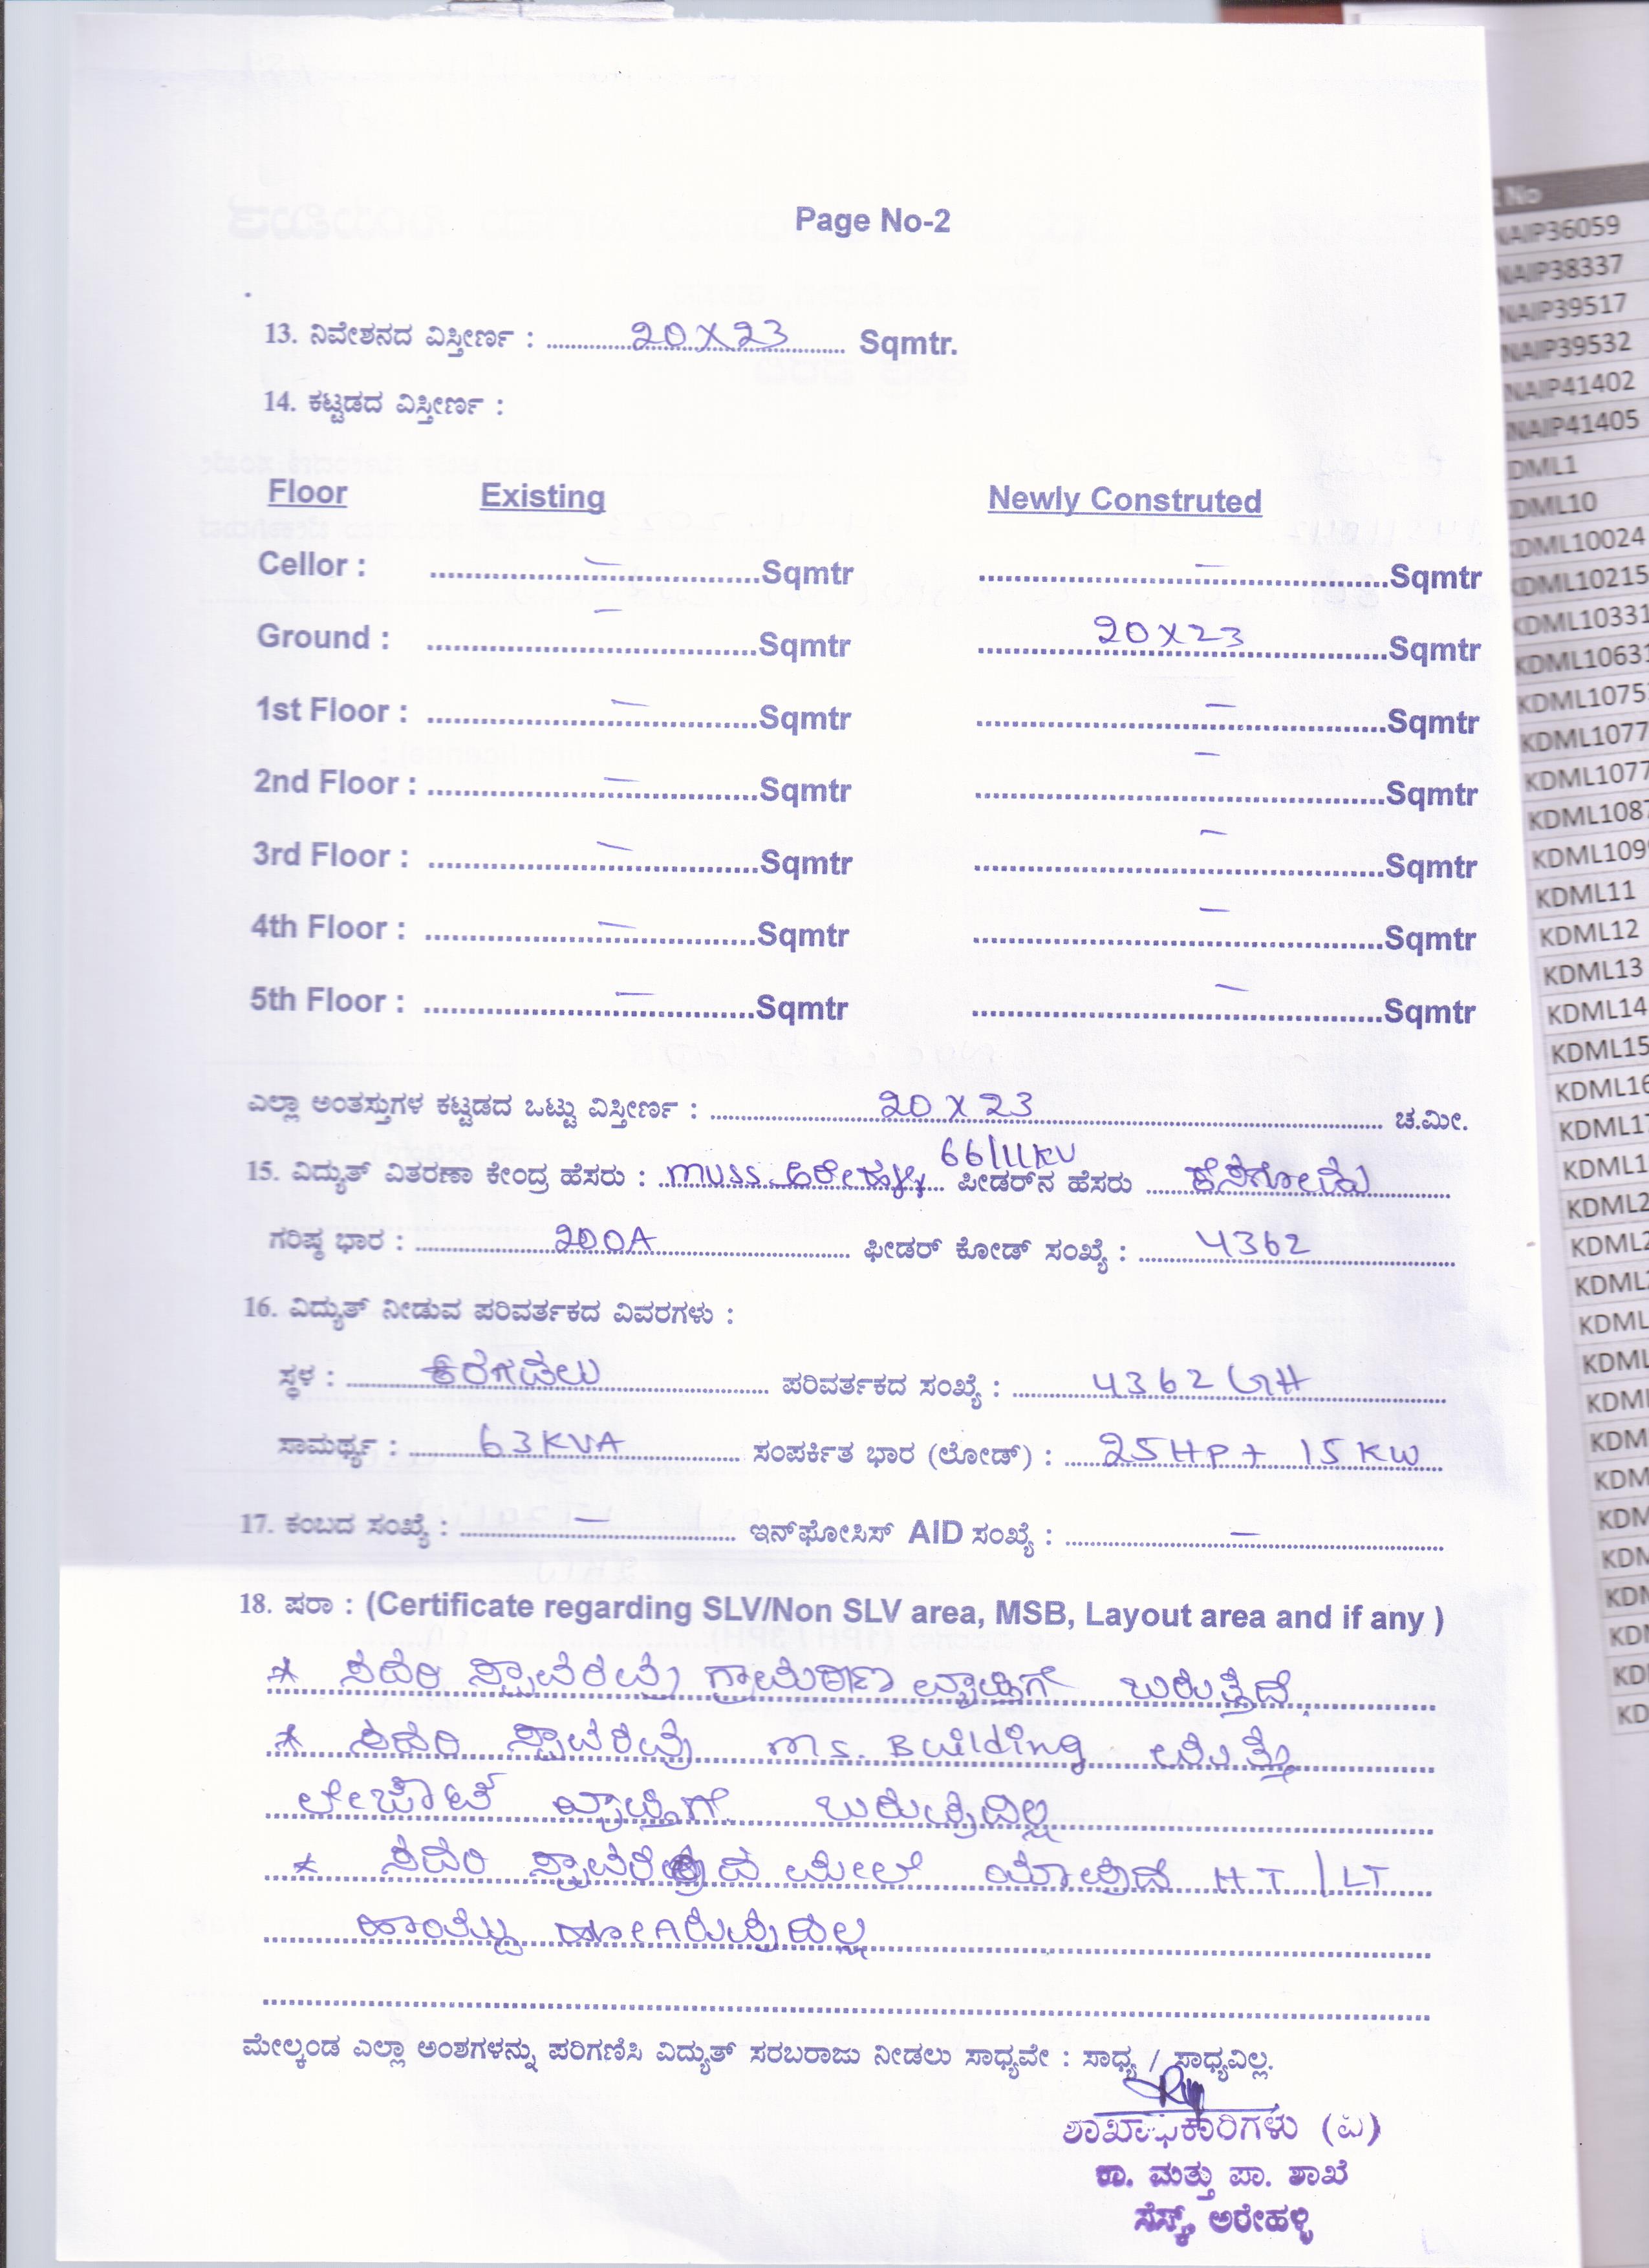 Page No-2
13. ನಿವೇಶನದ ವಿಸ್ತೀರ್ಣ : 20X23 Sqmtr.
14. ಕಟ್ಟಡದ ವಿಸ್ತೀರ್ಣ :
Floor Existing Newly Construted
Cellor : – Sqmtr – Sqmtr
Ground : – Sqmtr 20X23 Sqmtr
1st Floor : – Sqmtr – Sqmtr
2nd Floor : – Sqmtr – Sqmtr
3rd Floor : – Sqmtr – Sqmtr
4th Floor : – Sqmtr – Sqmtr
5th Floor : – Sqmtr – Sqmtr
ಎಲ್ಲಾ ಅಂತಸ್ತುಗಳ ಕಟ್ಟಡದ ಒಟ್ಟು ವಿಸ್ತೀರ್ಣ : 20 X 23 ಚ.ಮೀ.
66/11KV
15. ವಿದ್ಯುತ್ ವಿತರಣಾ ಕೇಂದ್ರ ಹೆಸರು : MUSS ಅರೇಹಳ್ಳಿ ಪೀಡರ್‌ನ ಹೆಸರು
ಗರಿಷ್ಠ ಭಾರ : 200A ಫೀಡರ್ ಕೋಡ್ ಸಂಖ್ಯೆ : 4362
16. ವಿದ್ಯುತ್ ನೀಡುವ ಪರಿವರ್ತಕದ ವಿವರಗಳು :
ಸ್ಥಳ : ಪರಿವರ್ತಕದ ಸಂಖ್ಯೆ : 4362 GH
ಸಾಮರ್ಥ್ಯ : 63 KVA ಸಂಪರ್ಕಿತ ಭಾರ (ಲೋಡ್) : 25 HP + 15 KW
17. ಕಂಬದ ಸಂಖ್ಯೆ : – ಇನ್‌ಫೋಸಿಸ್ AID ಸಂಖ್ಯೆ : –
18. ಷರಾ : (Certificate regarding SLV/Non SLV area, MSB, Layout area and if any )
* ಸದರಿ ಸ್ಥಾವರವು ಗ್ರಾಮಠಾಣ ವ್ಯಾಪ್ತಿಗೆ ಬರುತ್ತದೆ.
* ಸದರಿ ಸ್ಥಾವರವು ms. Building ಮತ್ತು
ಲೇಔಟ್ ವ್ಯಾಪ್ತಿಗೆ ಬರುವುದಿಲ್ಲ
* ಸದರಿ ಸ್ಥಾವರದ ಮೇಲೆ ಯಾವುದೆ HT / LT
ಹಾಯ್ದು ಹೋಗಿರುವುದಿಲ್ಲ
ಮೇಲ್ಕಂಡ ಎಲ್ಲಾ ಅಂಶಗಳನ್ನು ಪರಿಗಣಿಸಿ ವಿದ್ಯುತ್ ಸರಬರಾಜು ನೀಡಲು ಸಾಧ್ಯವೇ : ಸಾಧ್ಯ / ಸಾಧ್ಯವಿಲ್ಲ.
ಶಾಖಾಧಿಕಾರಿಗಳು (ವಿ)
ಕಾ. ಮತ್ತು ಪಾ. ಶಾಖೆ
ಸೆಸ್ಕ್, ಅರೇಹಳ್ಳಿ
No
NAIP36059
NAIP38337
NAIP39517
NAIP39532
NAIP41402
NAIP41405
DML1
DML10
KDML10024
KDML10215
KDML10331
KDML10631
KDML1075
KDML1077
KDML1077
KDML1087
KDML109
KDML11
KDML12
KDML13
KDML14
KDML15
KDML16
KDML17
KDML1
KDML2
KDML2
KDML
KDML
KDML
KDML
KDM
KDM
KDM
KDM
KDM
KD
KD
KD